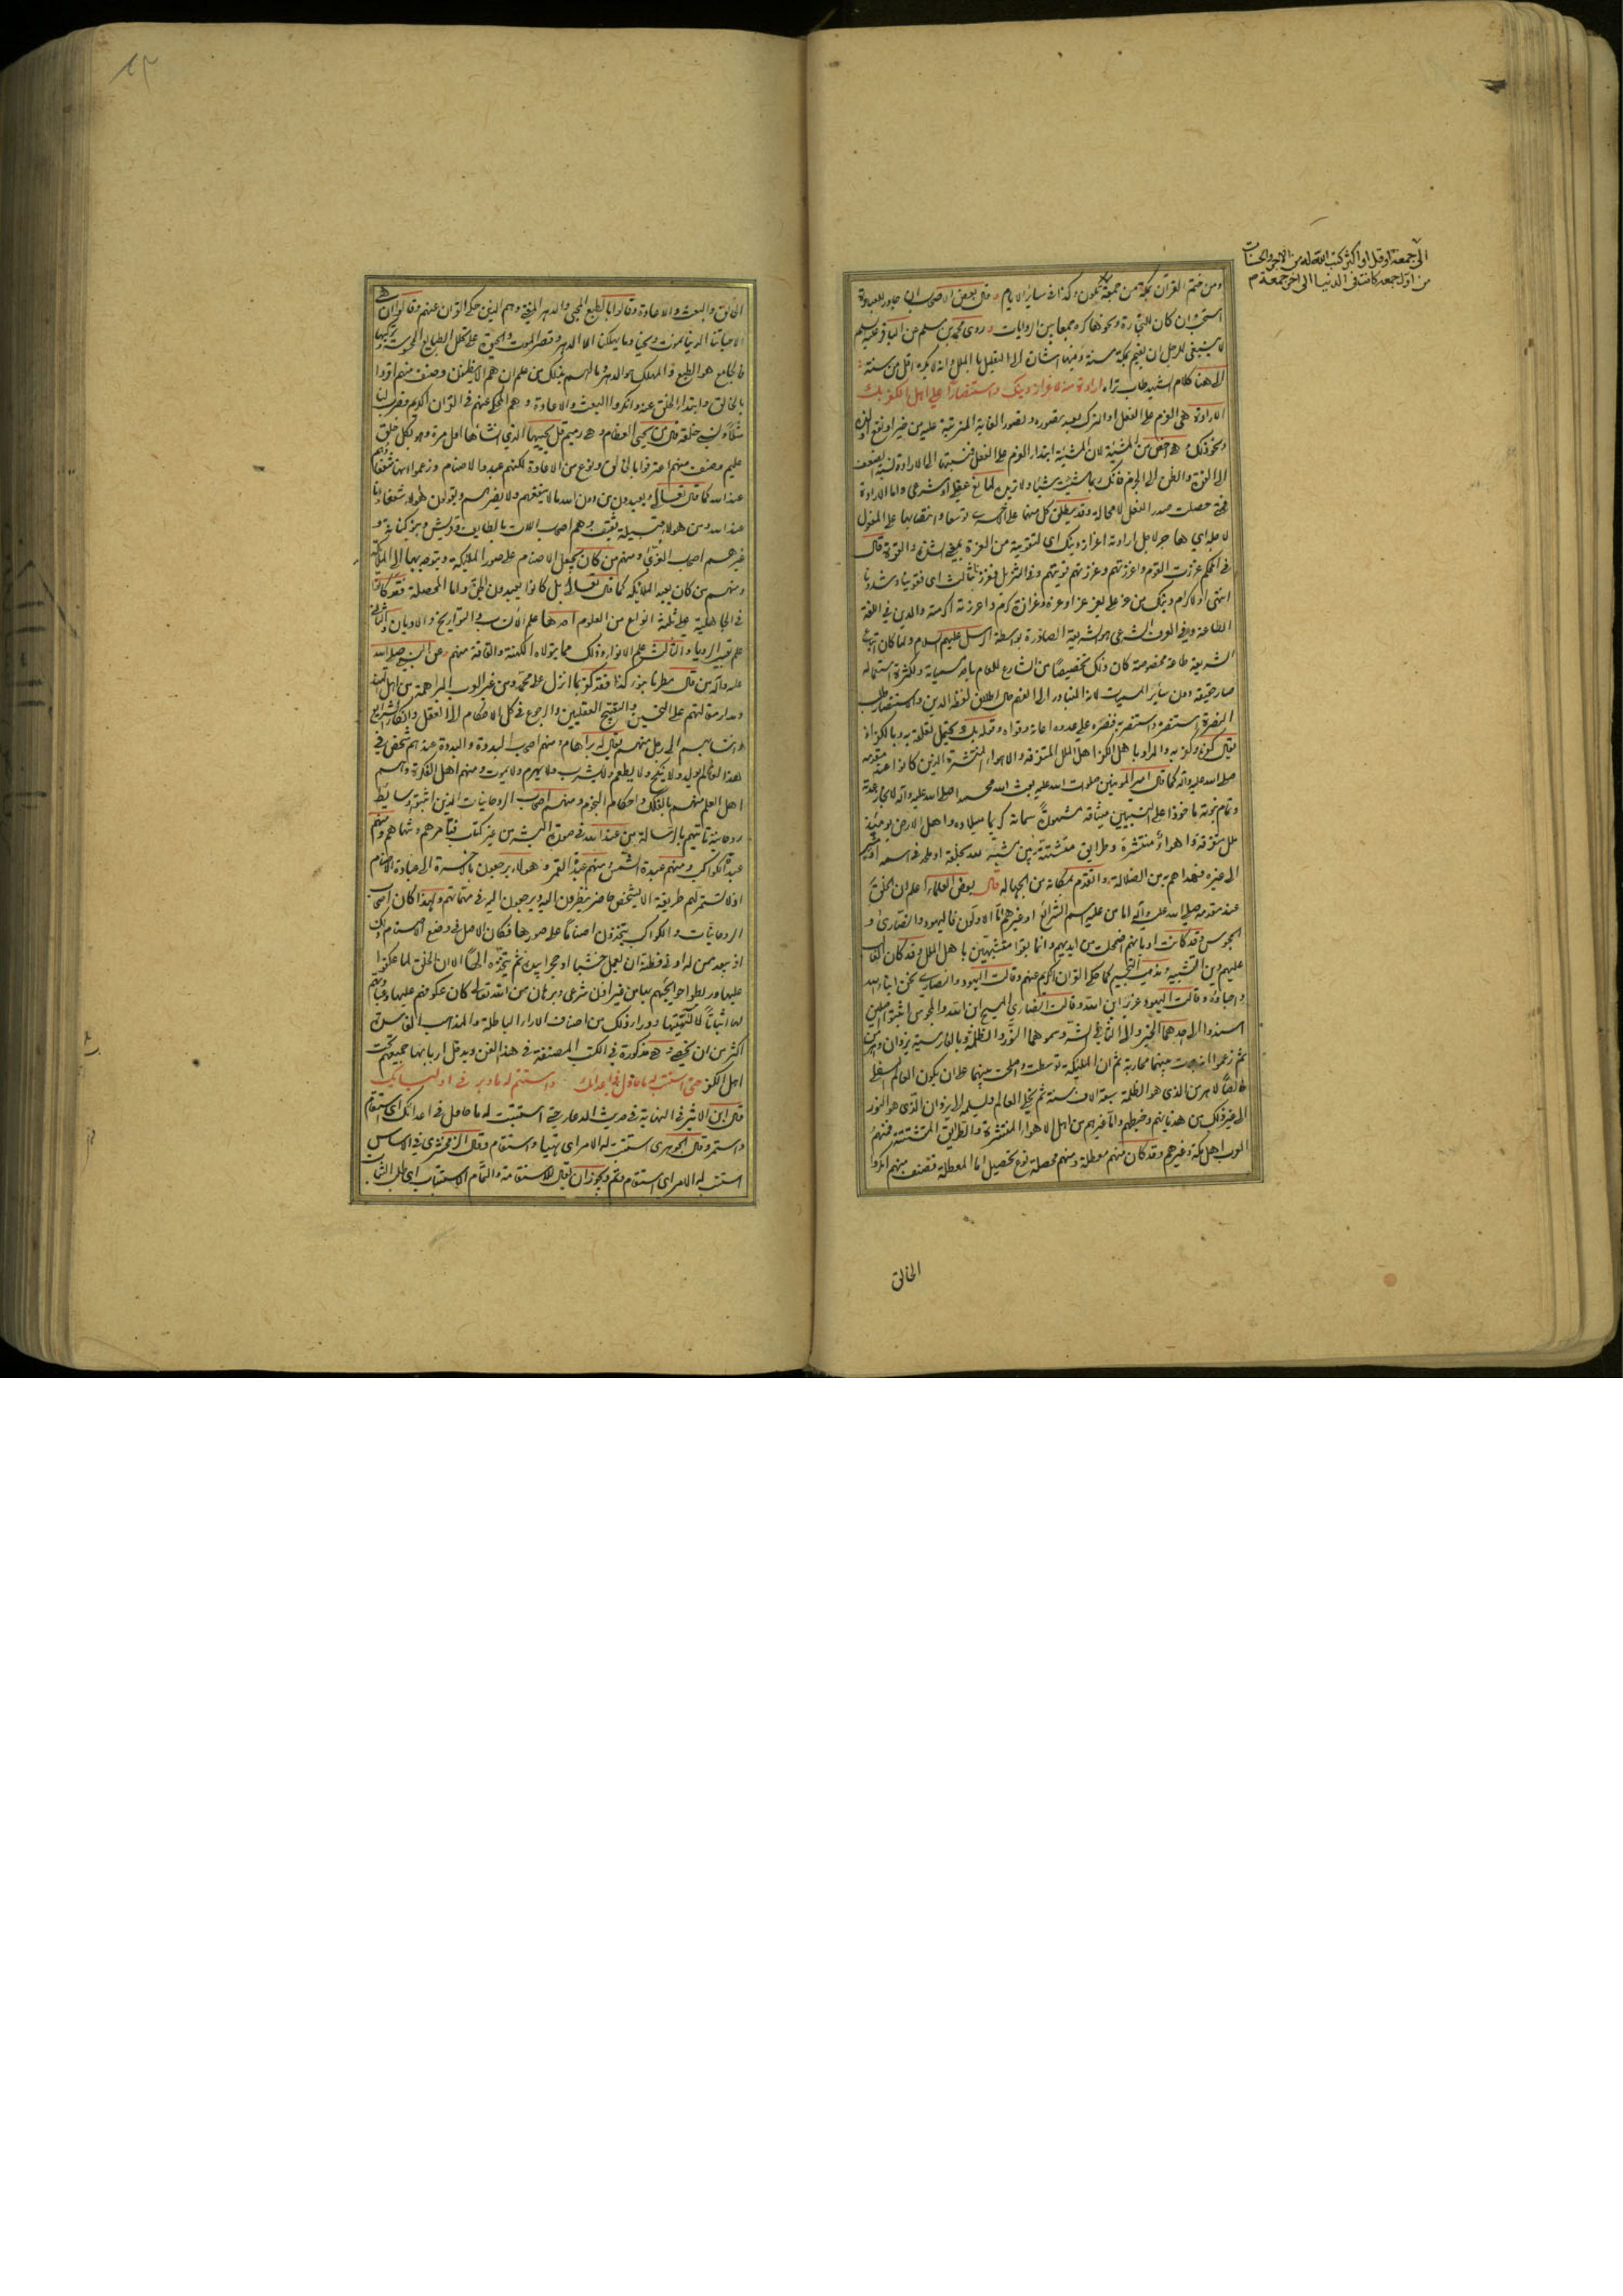 الى جمعة او اقل او اكثر كتب الله له من الاجر والحسنات
من اول جمعة كانت فى الدنيا الى اخر جمعة م
ومن ختم القرآن بمكة من جمعة تكون وكذا فى سائر الايام وقال بعض الاصحاب
استحب وان كان للتجارة ونحوها كره جمعا بين الروايات وروى محمد بن مسلم عن الباقر عليه السلم
لا ينبغى للرجل ان يقيم بمكة سنة
الى هنا كلام الشهيد طاب ثراه ارادة منه لاعزاز دينك واستنصارا على اهل الكفر بك
الارادة هى العزم على الفعل او الترك بعد تصوره وتصور الغاية المترتبة عليه من خير او نفع او لذة
ونحو ذلك وهى اخص من المشيئة لان المشيئة ابتداء العزم على الفعل فنسبتها الى الارادة نسبة الضعف
الى القوة والظن الى الجزم فانك ربما شئت شيئا ولا تريده لمانع عقلى او شرعى واما الارادة
فمتى حصلت صدر الفعل لا محالة وقد يطلق كل منهما على الاخرى توسعا وانتصابها على المفعول
لاجله اى هاجر لاجل ارادته اعزاز دينك اى لتقويته من العزة بمعنى الشدة والقوة قال
فى المحكم عززت القوم واعززتهم وعززتهم قويتهم وفى التنزيل فعززنا بثالث اى قوينا وشددنا
انتهى او لاكرام دينك من عز على يعز عزا وعزة وعزازة كرم واعززته اكرمته والدين فى اللغة
الطاعة وفى العرف الشرعى هو الشريعة الصادرة بواسطة الرسل عليهم السلام ولما كان اتباع
الشريعة طاعة مخصوصة كان ذلك تخصيصا من الشارع للعام باحد مسمياته ولكثرة استعماله
صار حقيقة دون سائر المسميات لانه المتبادر الى الفهم حال اطلاق لفظ الدين والاستنصار طلب
النصرة استنصره واستنصر به فنصره على عدوه اعانه وقواه وقوله بك يحتمل تعلقه به وبالكفر اذ
يقال كفره وكفر به والمراد باهل الكفر اهل الملل المتفرقة والاهواء المنتشرة الذين كانوا عند مقدمه
صلى الله عليه واله كما قال امير المؤمنين صلوات الله عليه بعث الله محمدا صلى الله عليه واله لانجاز عدته
وتمام نبوته ماخوذا على النبيين ميثاقه مشهورة سماته كريما ميلاده واهل الارض يومئذ
ملل متفرقة واهواء منتشرة وطرايق متشتتة بين مشبه لله بخلقه او ملحد فى اسمه او مشير
الى غيره فهداهم به من الضلالة وانقذهم بمكانه من الجهالة قال بعض العلماء اعلم ان الخلق
عند مقدمه صلى الله عليه واله اما من عليه اسم الشرائع او غيرهم اما الاولون فاليهود والنصارى و
المجوس وقد كانت اديانهم اضمحلت من ايديهم وانما بقوا متشبهين باهل الملل وقد كان الغالب
عليهم دين التشبيه ومذهب التجسيم كما حكى القران الكريم عنهم وقالت اليهود والنصارى نحن ابناء الله
واحباؤه وقالت اليهود عزير ابن الله وقالت النصارى المسيح ابن الله والمجوس اثبتوا اصلين
اسندوا الى احدهما الخير والى الثانى الشر وسموهما النور والظلمة وبالفارسية يزدان واهرمن
ثم زعموا انه حدثت بينهما محاربة ثم ان الملئكة توسطت واصلحت بينهما على ان يكون العالم السفلى
خالصا لاهرمن الذى هو الظلمة سبعة الاف سنة ثم يخلى العالم ويسلمه الى يزدان الذى هو النور
الى غير ذلك من هذيانهم وخبطهم واما غيرهم من اهل الاهواء المنتشرة والطرايق المتشتتة فمنهم
العرب اهل مكة وغيرهم وقد كان منهم معطلة ومنهم محصلة نوع تحصيل اما المعطلة فصنف منهم انكروا
الخالق
الخالق والبعث والاعادة وقالوا بالطبع المحيى والدهر المفنى وهم الذين حكى القران عنهم وقالوا ان هى
الا حياتنا الدنيا نموت ونحيى وما يهلكنا الا الدهر وقصر الموت والحيوة على تحلل الطبايع المحسوسة وتركبها
فالجامع هو الطبع والمهلك هو الدهر وما لهم بذلك من علم ان هم الا يظنون وصنف منهم اقروا
بالخالق وابتداء الخلق عنه وانكروا البعث والاعادة وهم المحكى عنهم فى القران الكريم وضرب لنا
مثلا ونسى خلقه قال من يحيى العظام وهى رميم قل يحييها الذى انشاها اول مرة وهو بكل خلق
عليم وصنف منهم اعترفوا بالخالق ونوع من الاعادة لكنهم عبدوا الاصنام وزعموا انها شفعاؤهم
عند الله كما قال تعالى ويعبدون من دون الله ما لا ينفعهم ولا يضرهم ويقولون هؤلاء شفعاؤنا
عند الله ومن هؤلاء قبيلة ثقيف وهم اصحاب اللات بالطايف وقريش وبنو كنانة و
غيرهم اصحاب العزى ومنهم من كان يجعل الاصنام على صور الملئكة ويتوجه بها الى الملئكة
ومنهم من كان يعبد الملائكة كما قال تعالى بل كانوا يعبدون الجن واما المحصلة فقد كانوا
فى الجاهلية على ثلثة انواع من العلوم احدها علم الانساب والتواريخ والاديان والثانى
علم تعبير الرؤيا والثالث علم الانواء وذلك مما يتولاه الكهنة والقافة منهم وعن النبى صلى الله
عليه واله من قال مطرنا بنوء كذا فقد كفر بما انزل على محمد ومن غير العرب البراهمة من اهل الهند
ومدار مقالتهم على التحسين والتقبيح العقليين والرجوع فى كل الاحكام الى العقل وانكار الشرايع
وانتسابهم الى رجل منهم يقال له براهام ومنهم اصحاب البددة والبدة عندهم شخص فى
هذا العالم لم يولد ولا ينكح ولا يطعم ولا يشرب ولا يهرم ولا يموت ومنهم اهل الفكرة وهم
اهل العلم منهم بالفلك واحكام النجوم ومنهم اصحاب الروحانيات الذين اثبتوا وسايط
روحانية تاتيهم بالرسالة من عند الله فى صورة البشر من غير كتب فتامرهم وتنهاهم ومنهم
عبدة الكواكب ومنهم عبدة الشمس ومنهم عبدة القمر وهؤلاء يرجعون باخرة الى عبادة الاصنام
اذ لا تستمر لهم طريقة الا بشخص حاضر ينظرون اليه ويرجعون اليه فى مهماتهم ولهذا كان اصحاب
الروحانيات والكواكب يتخذون اصناما على صورها فكان الاصل فى وضع الاصنام ذلك
اذ يبعد ممن له ادنى فطنة ان يعمل خشبا او حجرا بيده ثم يتخذه الها الا ان الخلق لما عكفوا
عليها وربطوا حوايجهم بها من غير اذن شرعى وبرهان من الله تعالى كان عكوفهم عليها وعبادتهم
لها اثباتا لالهيتها ووراء ذلك من اصناف الاراء الباطلة والمذاهب الفاسدة
اكثر من ان يحصى وهى مذكورة فى الكتب المصنفة فى هذا الفن ويدخل اربابها جميعهم تحت
اهل الكفر حتى استتب له ما حاول فى اعدائك واستتم له ما دبر فى اوليائك
قال ابن الاثير فى النهاية فى حديث الدعاء حتى استتب له ما حاول فى اعدائك اى استقام
واستمر وقال الجوهرى استتب له الامر اى تهيا واستقام وقال الزمخشرى فى الاساس
استتب له الامر اى استقام وتم ويجوز ان يقال للاستقامة والتمام الاستتباب اى طلب التباب